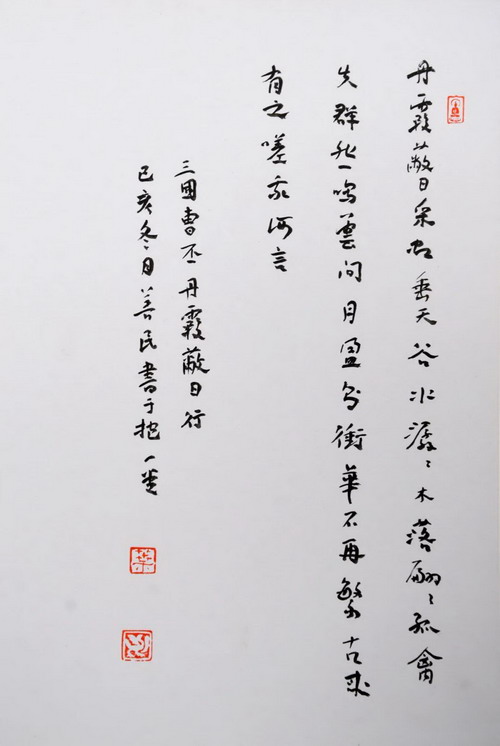 丹霞蔽日采虹垂天谷水潺〻木落翩〻孤禽
失群悲鳴雲間月盈則衝華不再繁古來
有之嗟我何言
三國曹丕丹霞蔽日行
己亥冬月善民書于抱一堂